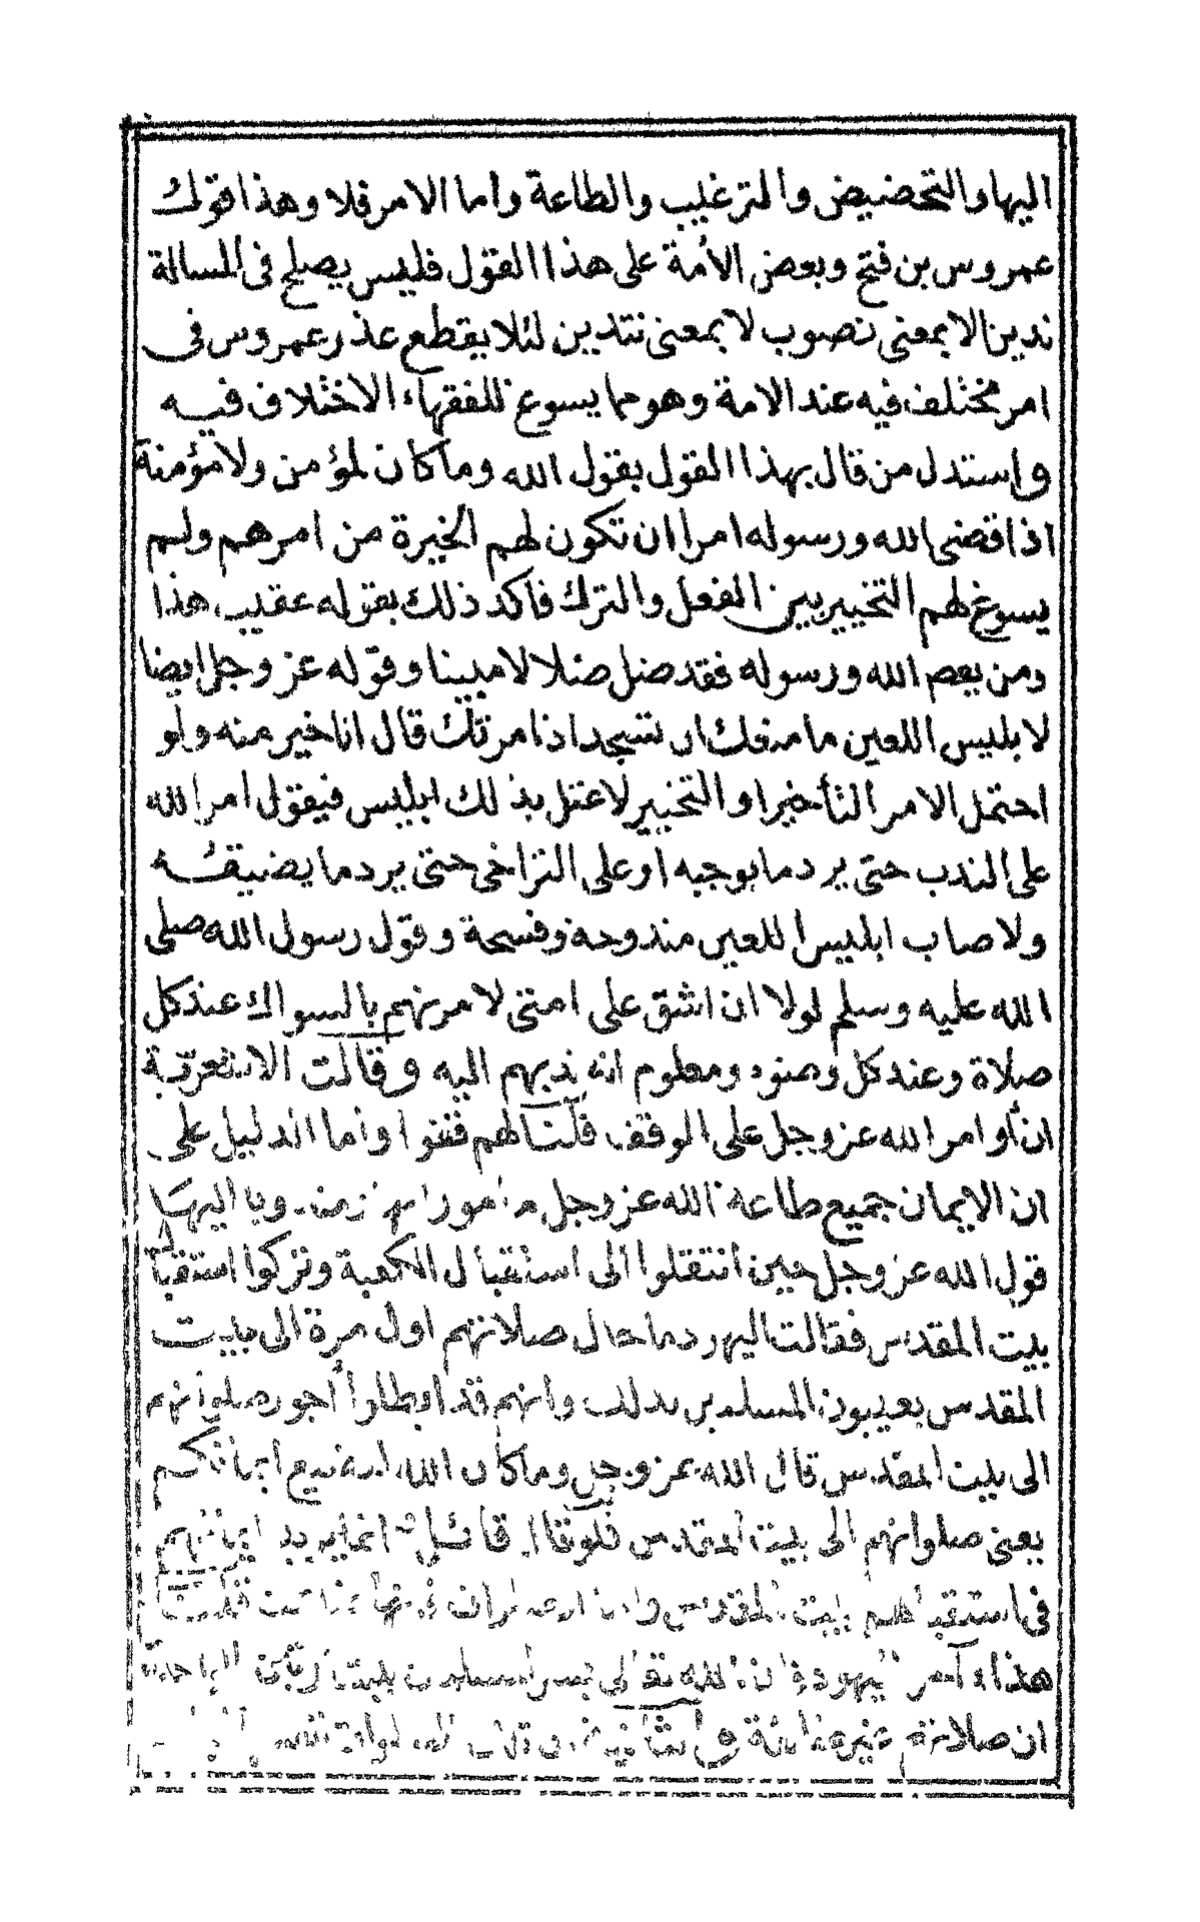 اليها والتحضيض والترغيب والطاعة وأما الامر فلا وهذا قولك
عمروس بن فتح وبعض الأمة على هذا القول فليس يصلح في المسالة
ندين الا بمعنى نصوب لا بمعنى نتدين لئلا يقطع عذر عمروس في
امر مختلف فيه عند الامة وهو مما يسوغ للفقهاء الاختلاف فيه
واستدل من قال بهذا القول بقول الله وما كان لمؤمن ولا مؤمنة
اذا قضى الله ورسوله امرا ان تكون لهم الخيرة من امرهم ولم
يسوغ لهم التخيير بين الفعل والترك فأكد ذلك بقوله عقيب هذا
ومن يعص الله ورسوله فقد ضل ضلالا مبينا وقوله عز وجل ايضا
لابليس اللعين ما منعك ان تسجد اذ امرتك قال انا خير منه ولو
احتمل الامر التأخير او التخيير لاعتل بذلك ابليس فيقول امر الله
على الندب حتى يرد ما يوجبه او على التراخي حتى يرد ما يضيقه
ولاصاب ابليس اللعين مندوحة وفسحة وقول رسول الله صلى
الله عليه وسلم لولا ان اشق على امتي لامرتهم بالسواك عند كل
صلاة وعند كل وضوء ومعلوم انه ندبهم اليه وقالت الاشعرية
ان أوامر الله عز وجل على الوقف قلنا لهم قفوا وأما الدليل على
ان الايمان جميع طاعة الله عز وجل
قول الله عز وجل حين انتقلوا الى استقبال الكعبة وتركوا استقبال
بيت المقدس فقالت اليهود ما حال صلاتهم اول مرة الى بيت
المقدس يعيبون المسلمين بذلك وانهم قد ابطلوا أجور صلواتهم
الى بيت المقدس قال الله عز وجل وما كان الله ليضيع ايمانكم
يعنى صلواتهم الى بيت المقدس فلو قال قائل انما يريد ايمانهم
في استقبالهم بيت المقدس
هذا اليهود الله تعالى
ان صلاتهم غير